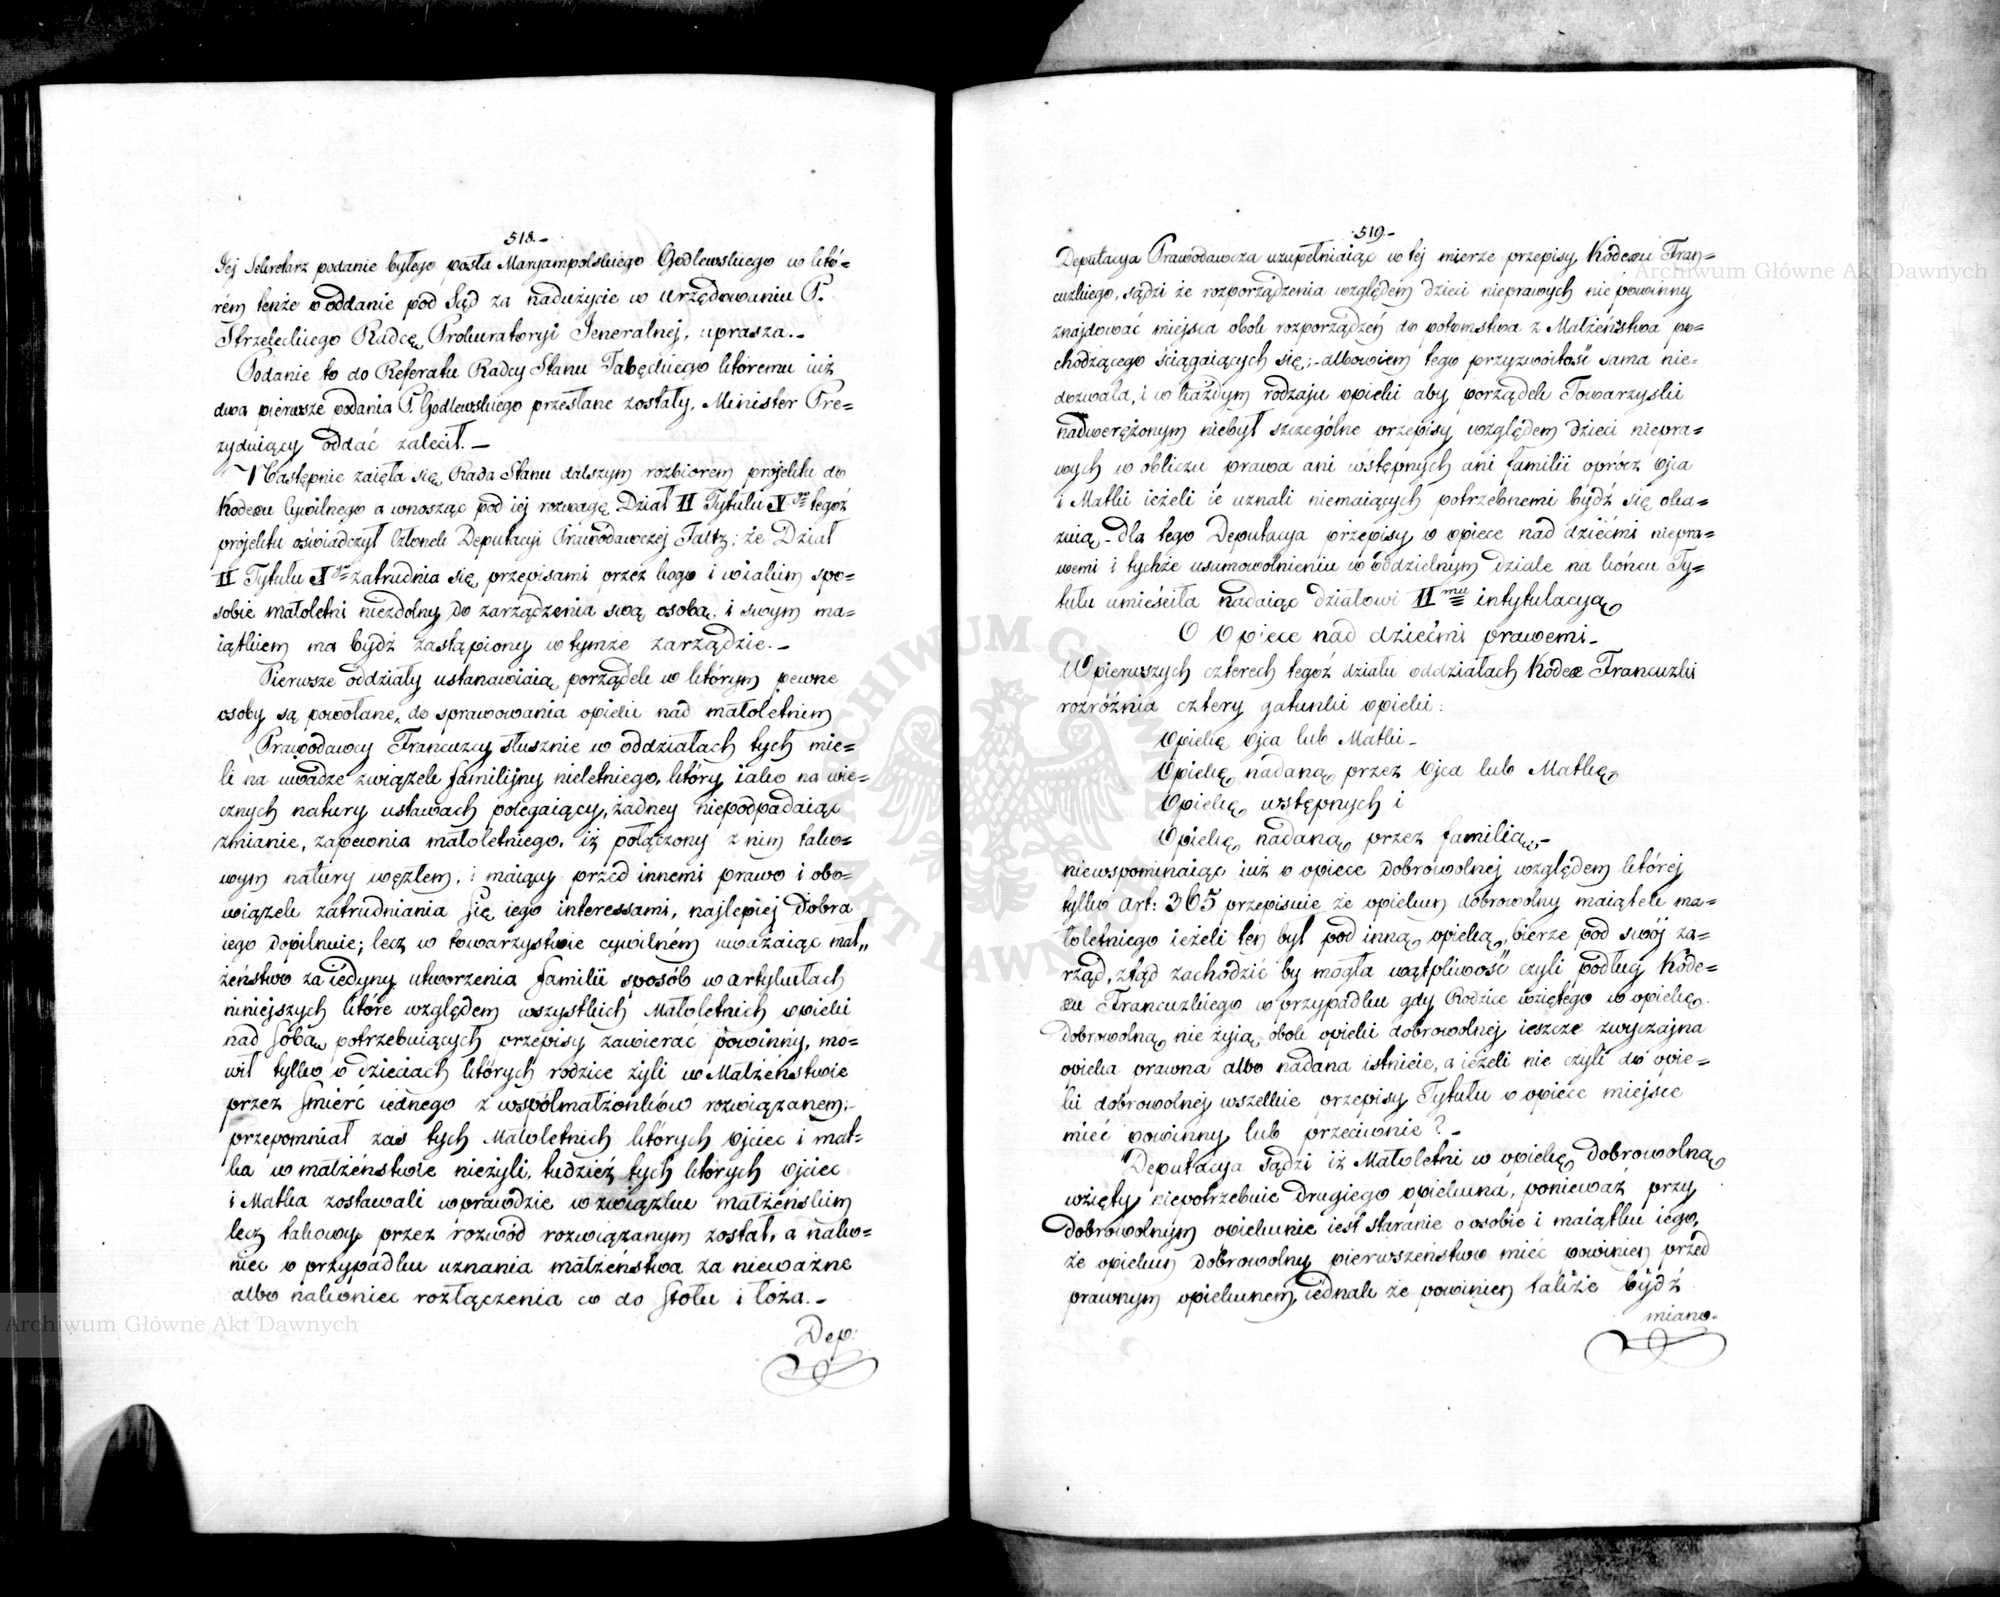 518.-
Jej Sekretarz podanie byłego posła Maryampolskiego Godlewskiego w któ=
rém tenże o oddanie pod Sąd za nadużycie w urzędowaniu P.
Strzeleckiego Radcę Prokuratoryi Jeneralnej, uprasza.-
Podanie to do Referatu Radcy Stanu Tabęckiego któremu iuż
dwa pierwsze podania P. Godlewskiego przesłane zostały, Minister Pre=
zyduiący oddać zalecił.-
Następnie zaięła się Rada Stanu dalszym rozbiorem projektu do
Kodexu Cywilnego a wnosząc pod iej rozwagę Dział II Tytułu X go tegoż
projektu oświadczył Członek Deputacyi Prawodawczej Faltz; że Dział
II Tytułu X go zatrudnia się przepisami przez kogo i w iakim spo=
sobie małoletni niezdolny do zarządzenia swą osobą, i swym ma=
iątkiem ma bydź zastąpiony w tymże zarządzie.-
Pierwsze oddziały ustanawiaią porządek w którym pewne
osoby są powołane, do sprawowania opieki nad małoletnim
Prawodawcy Francuzcy słusznie w oddziałach tych mie=
li na uwadze związek familijny nieletniego, który iako na wie=
cznych natury ustawach polegaiący, żadney niepodpadaiąc
zmianie, zapewnia małoletniego, iż połączony z nim tako=
wym natury węzłem, i maiący przed innemi prawo i obo=
wiązek zatrudniania się iego interessami, najlepiej dobra
iego dopilnuie; lecz w towarzystwie cywilném uważaiąc mał„
żeństwo za iedyny utworzenia familii sposób w artykułach
niniejszych które względem wszystkich Małoletnich opieki
nad sobą potrzebuiących przepisy zawierać powinny, mo=
wił tylko o dzieciach których rodzice żyli w Małżeństwie
przez śmierć iednego z współmałżonków rozwiązanem;-
przepomniał zaś tych Małoletnich których ojciec i mat=
ka w małżeństwie nieżyli, tudzież tych których ojciec
i Matka zostawali wprawdzie w związku małżeńskim
lecz takowy przez rozwód rozwiązanym został, a nako=
niec w przypadku uznania małżeństwa za nieważne
albo nakoniec rozłączenia co do stołu i łoża.-
Dep:
519-
Deputacya Prawodawcza uzupełniaiąc w tej mierze przepisy Kodexu Fran=
cuzkiego, sądzi że rozporządzenia względem dzieci nieprawych nie powinny
znajdować miejsca obok rozporządzeń do potomstwa z Małżeństwa po=
chodzącego ściągaiących się;- albowiem tego przyzwoitość sama nie=
dozwala, i w każdym rodzaju opieki aby porządek Towarzyski
nadwerężonym niebył szczególne przepisy względem dzieci niepra=
wych w obliczu prawa ani wstępnych ani familii oprócz ojca
i Matki ieżeli ie uznali niemaiących potrzebnemi bydź się oka=
zuią.- dla tego Deputacya przepisy o opiece nad dziećmi niepra=
wemi i tychże usamowolnieniu w oddzielnym dziale na końcu Ty=
tułu umieściła nadaiąc działowi II mu intytulacyą
O Opiece nad dziećmi prawemi-
W pierwszych czterech tegoż działu oddziałach Kodex Francuzki
rozróżnia cztery gatunki opieki:
Opiekę Ojca lub Matki-
Opiekę nadaną przez Ojca lub Matkę
Opiekę wstępnych i
Opiekę nadaną przez familią,-
niewspominaiąc iuż o opiece dobrowolnej względem której
tylko art: 365 przepisuie że opiekun dobrowolny maiątek ma=
łoletniego ieżeli ten był pod inną opieką, bierze pod swój za=
rząd, ztąd zachodzić by mogła wątpliwość czyli podług Kode=
xu Francuzkiego w przypadku gdy Rodzice wziętego w opiekę
dobrowolną nie żyią, obok opieki dobrowolnej ieszcze zwyczajna
opieka prawna albo nadana istnieie, a ieżeli nie czyli do opie=
ki dobrowolnej wszelkie przepisy Tytułu o opiece miejsce
mieć powinny lub przeciwnie?-
Deputacya sądzi iż Małoletni w opiekę dobrowolną
wzięty niepotrzebuie drugiego opiekuna, ponieważ przy
dobrowolnym opiekunie iest staranie o osobie i maiątku iego,
że opiekun dobrowolny pierwszeństwo mieć powinien przed
prawnym opiekunem, iednak że powinien także bydź
miano-
Archiwum Główne Akt Dawnych
Archiwum Główne Akt Dawnych
ARCHIWUM GŁÓWNE AKT DAWNYCH